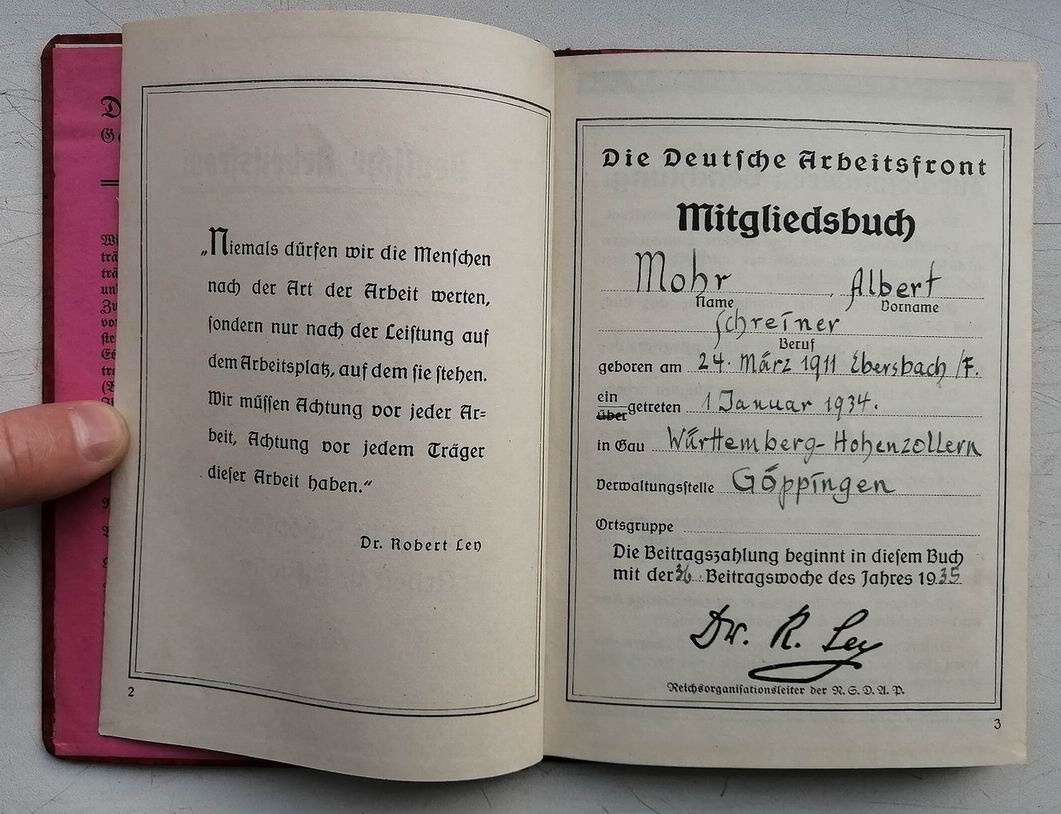 „Niemals dürfen wir die Menschen
nach der Art der Arbeit werten,
sondern nur nach der Leistung auf
dem Arbeitsplatz, auf dem sie stehen.
Wir müssen Achtung vor jeder Ar=
beit, Achtung vor jedem Träger
dieser Arbeit haben.“
Dr. Robert Ley
2
Die Deutsche Arbeitsfront
Mitgliedsbuch
Mohr Albert
Name Vorname
Schreiner
Beruf
geboren am 24. März 1911 Ebersbach /F.
ein
über getreten 1 Januar 1934.
in Gau Württemberg-Hohenzollern
Verwaltungsstelle Göppingen
Ortsgruppe
Die Beitragszahlung beginnt in diesem Buch
mit der 36. Beitragswoche des Jahres 1935
Dr. R. Ley
Reichsorganisationsleiter der N. S. D. A. P.
3